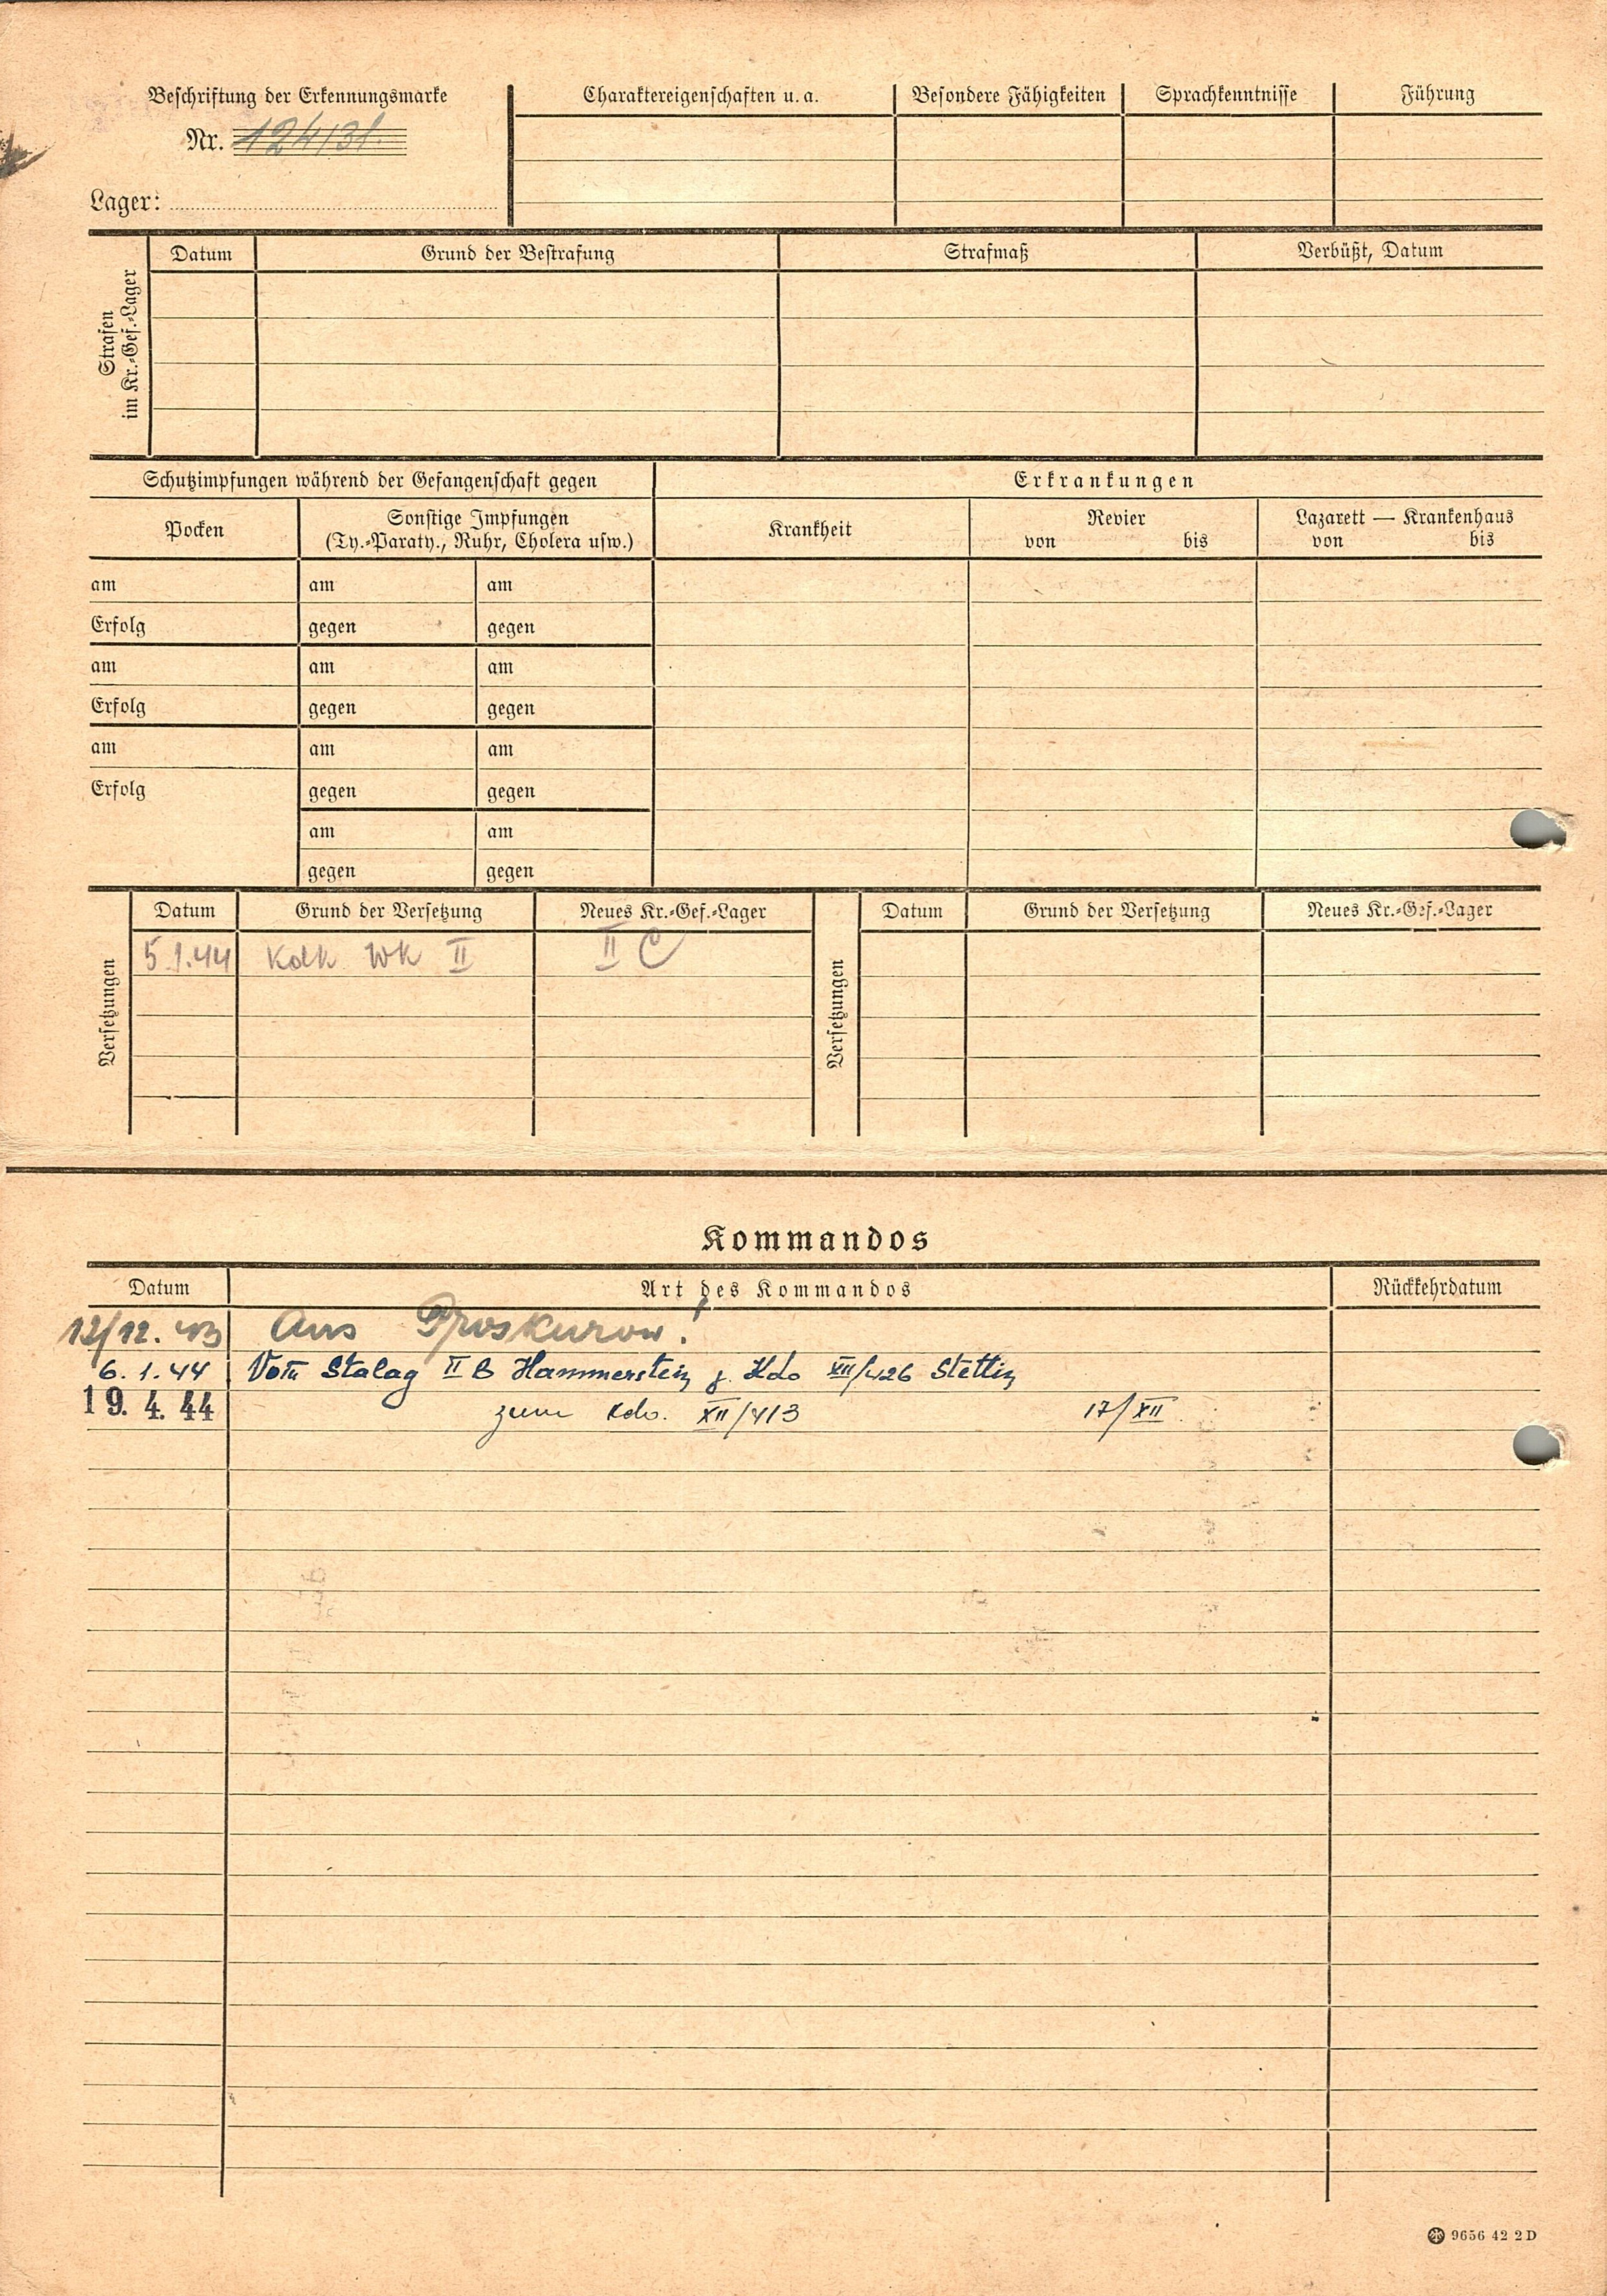 Beschriftung der Erkennungsmarke
Nr. 124131.
Lager:
Charaktereigenschaften u. a. Besondere Fähigkeiten Sprachkenntnisse Führung
Strafen im Kr.-Gef.-Lager
Datum Grund der Bestrafung Strafmaß Verbüßt, Datum
Schutzimpfungen während der Gefangenschaft gegen Erkrankungen
Pocken
Sonstige Impfungen
(Ty.-Paraty., Ruhr, Cholera usw.)
Krankheit
Revier
von bis
Lazarett — Krankenhaus
von bis
am am am
Erfolg gegen gegen
am am am
Erfolg gegen gegen
am am am
Erfolg gegen gegen
am am
gegen gegen
Versetzungen
Datum Grund der Versetzung Neues Kr.-Gef.-Lager
5.1.44 Kdk Wk II II C
Versetzungen
Datum Grund der Versetzung Neues Kr.-Gef.-Lager
Kommandos
Datum Art des Kommandos Rückkehrdatum
12/12. 43 Aus Proskurow.
6. 1. 44 Vom Stalag II B Hammerstein z. Kdo XII/426 Stettin
19. 4. 44 zum Kdo. XII/413 17/XII.
9656 42 2 D